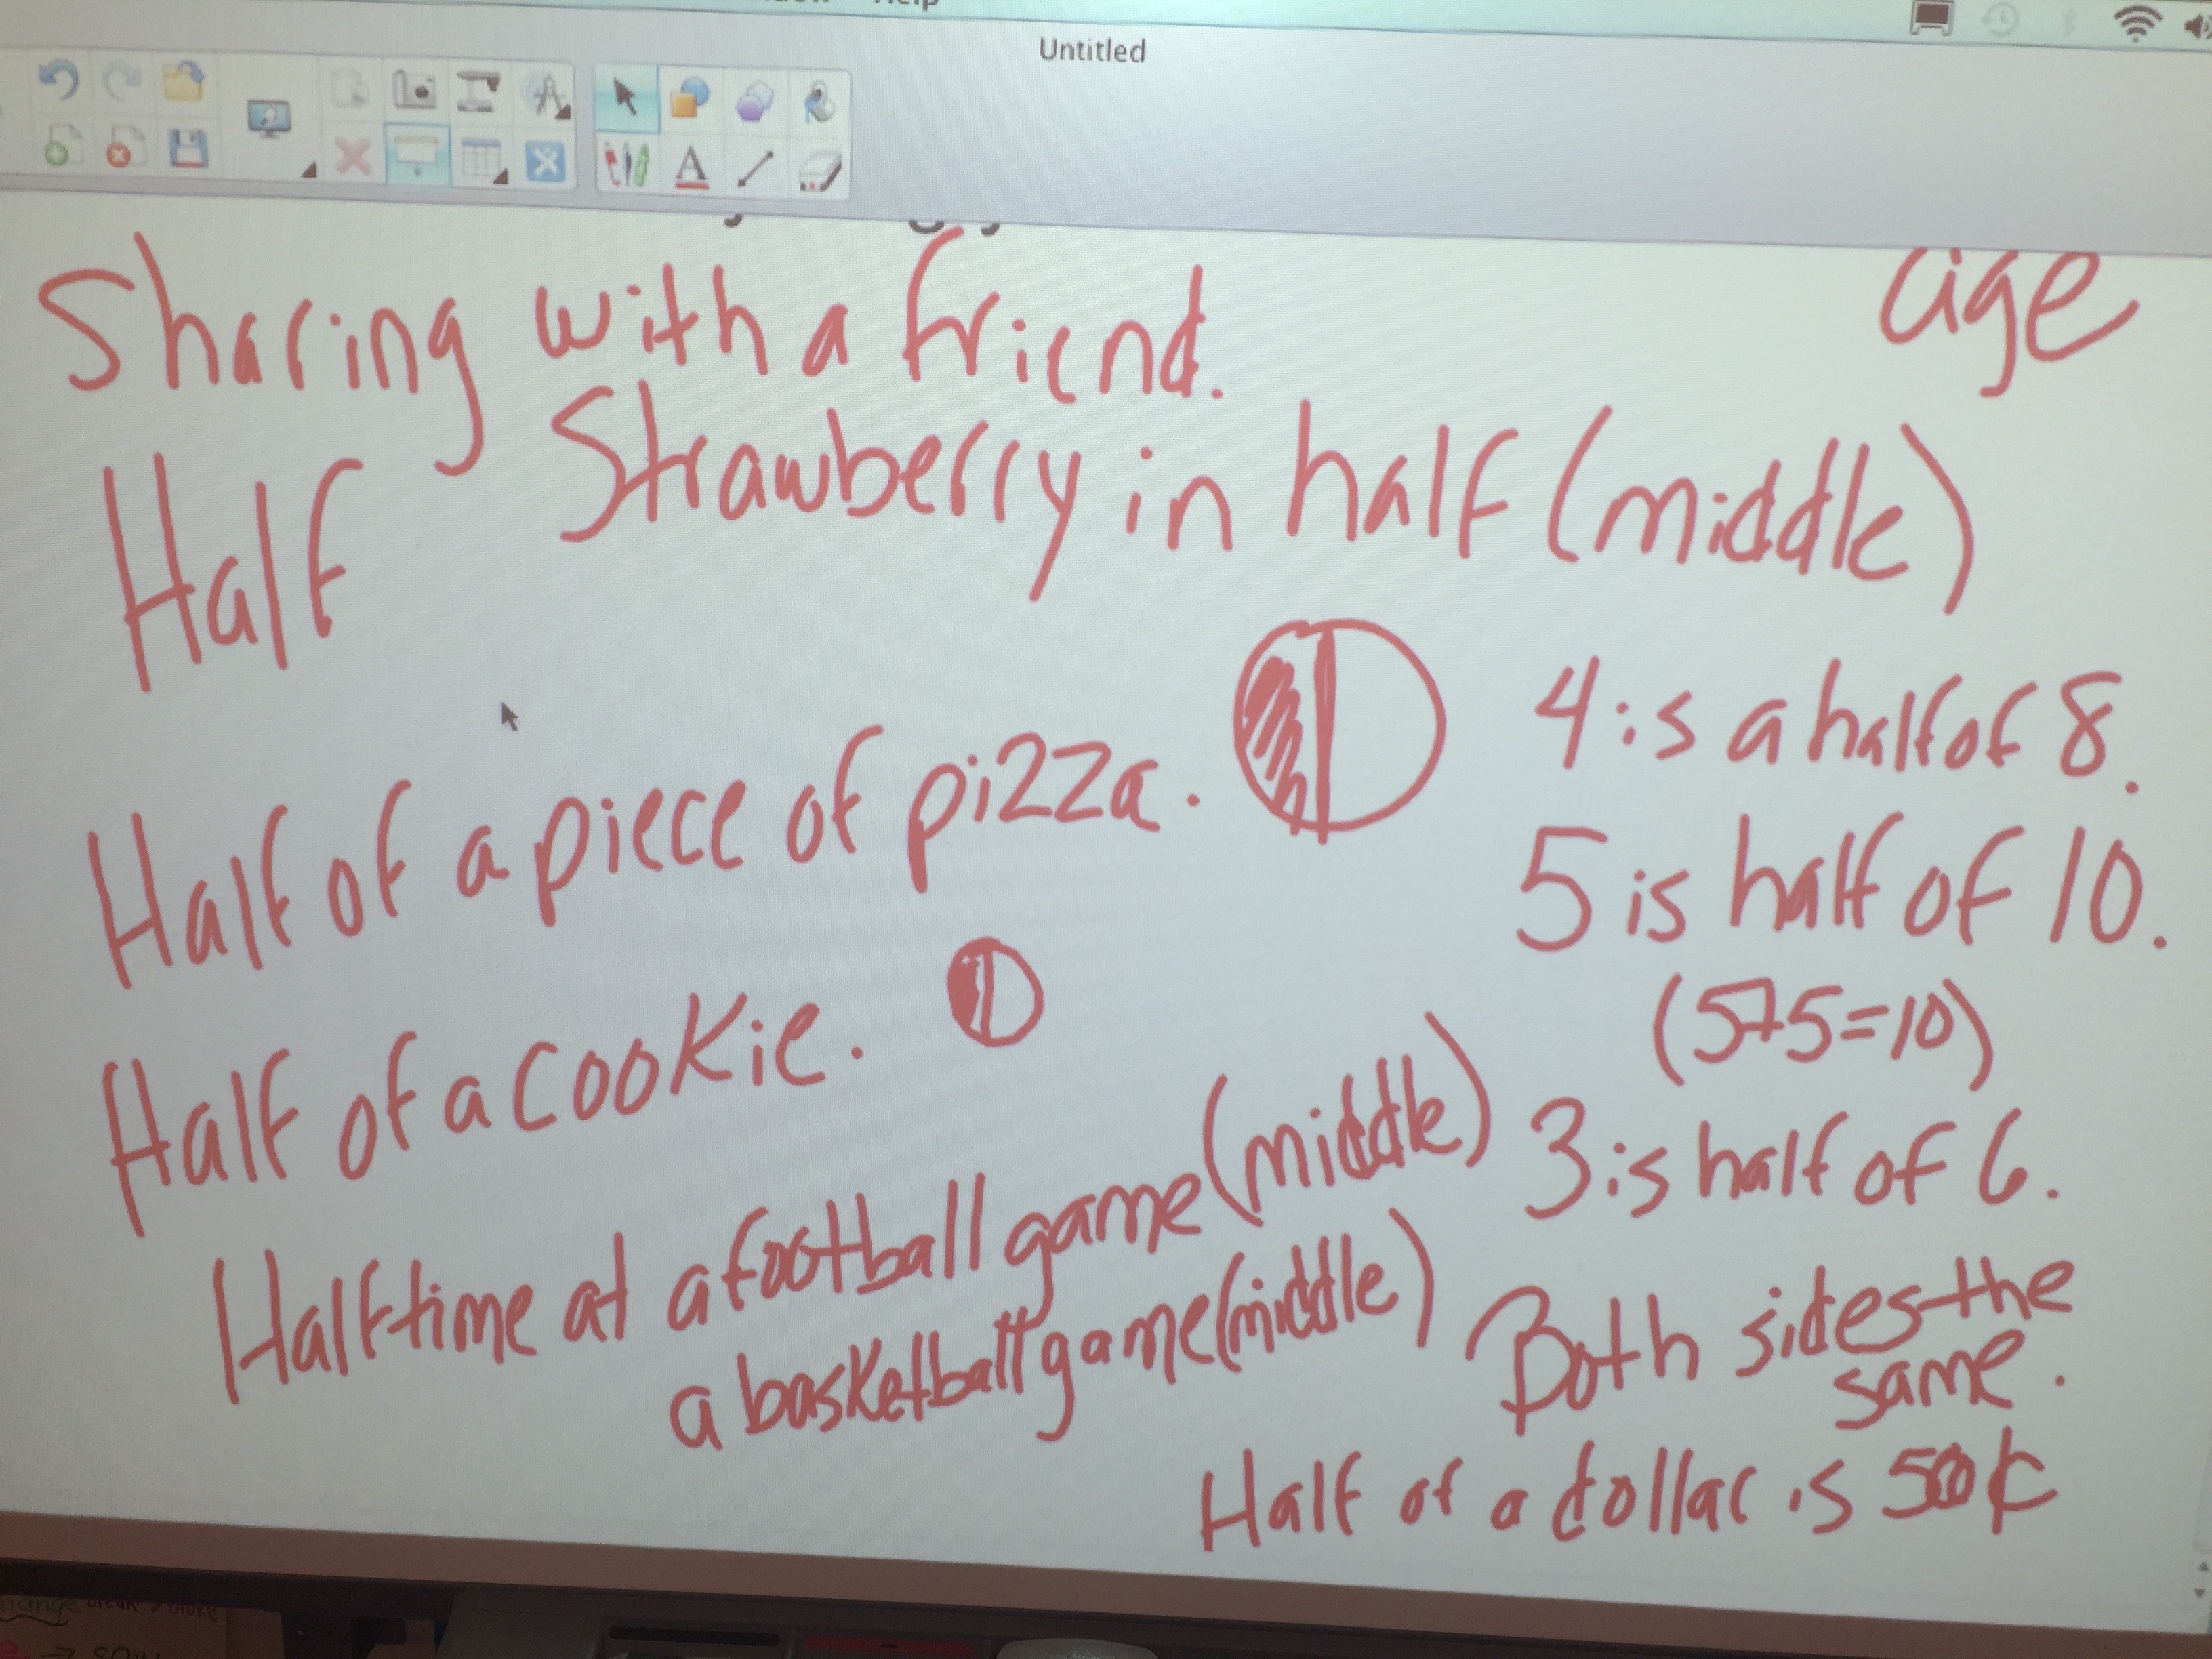 Help
Untitled
Sharing with a friend.
age
Half
Strawberry in half (middle)
4 is a half of 8.
Half of a piece of pizza.
5 is half of 10.
(5+5=10)
Half of a cookie.
3 is half of 6.
Halftime at a football game (middle)
a basketball game (middle)
Both sides the
same.
Half of a dollar is 50¢